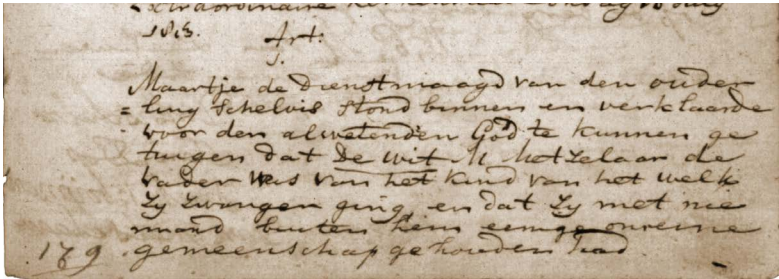 Extraordinaire
1813. Art:
1.
Maartje de Dienstmaagd van den ouder
= ling Schelvis stond binnen en verklaarde
voor den alwetenden God te kunnen ge
tuigen dat De Wit M Metzelaar de
vader was van het kind van het welk
zy zwanger ging en dat zy met nie
mand buiten hem eenige onreine
179. gemeenschap gehouden had